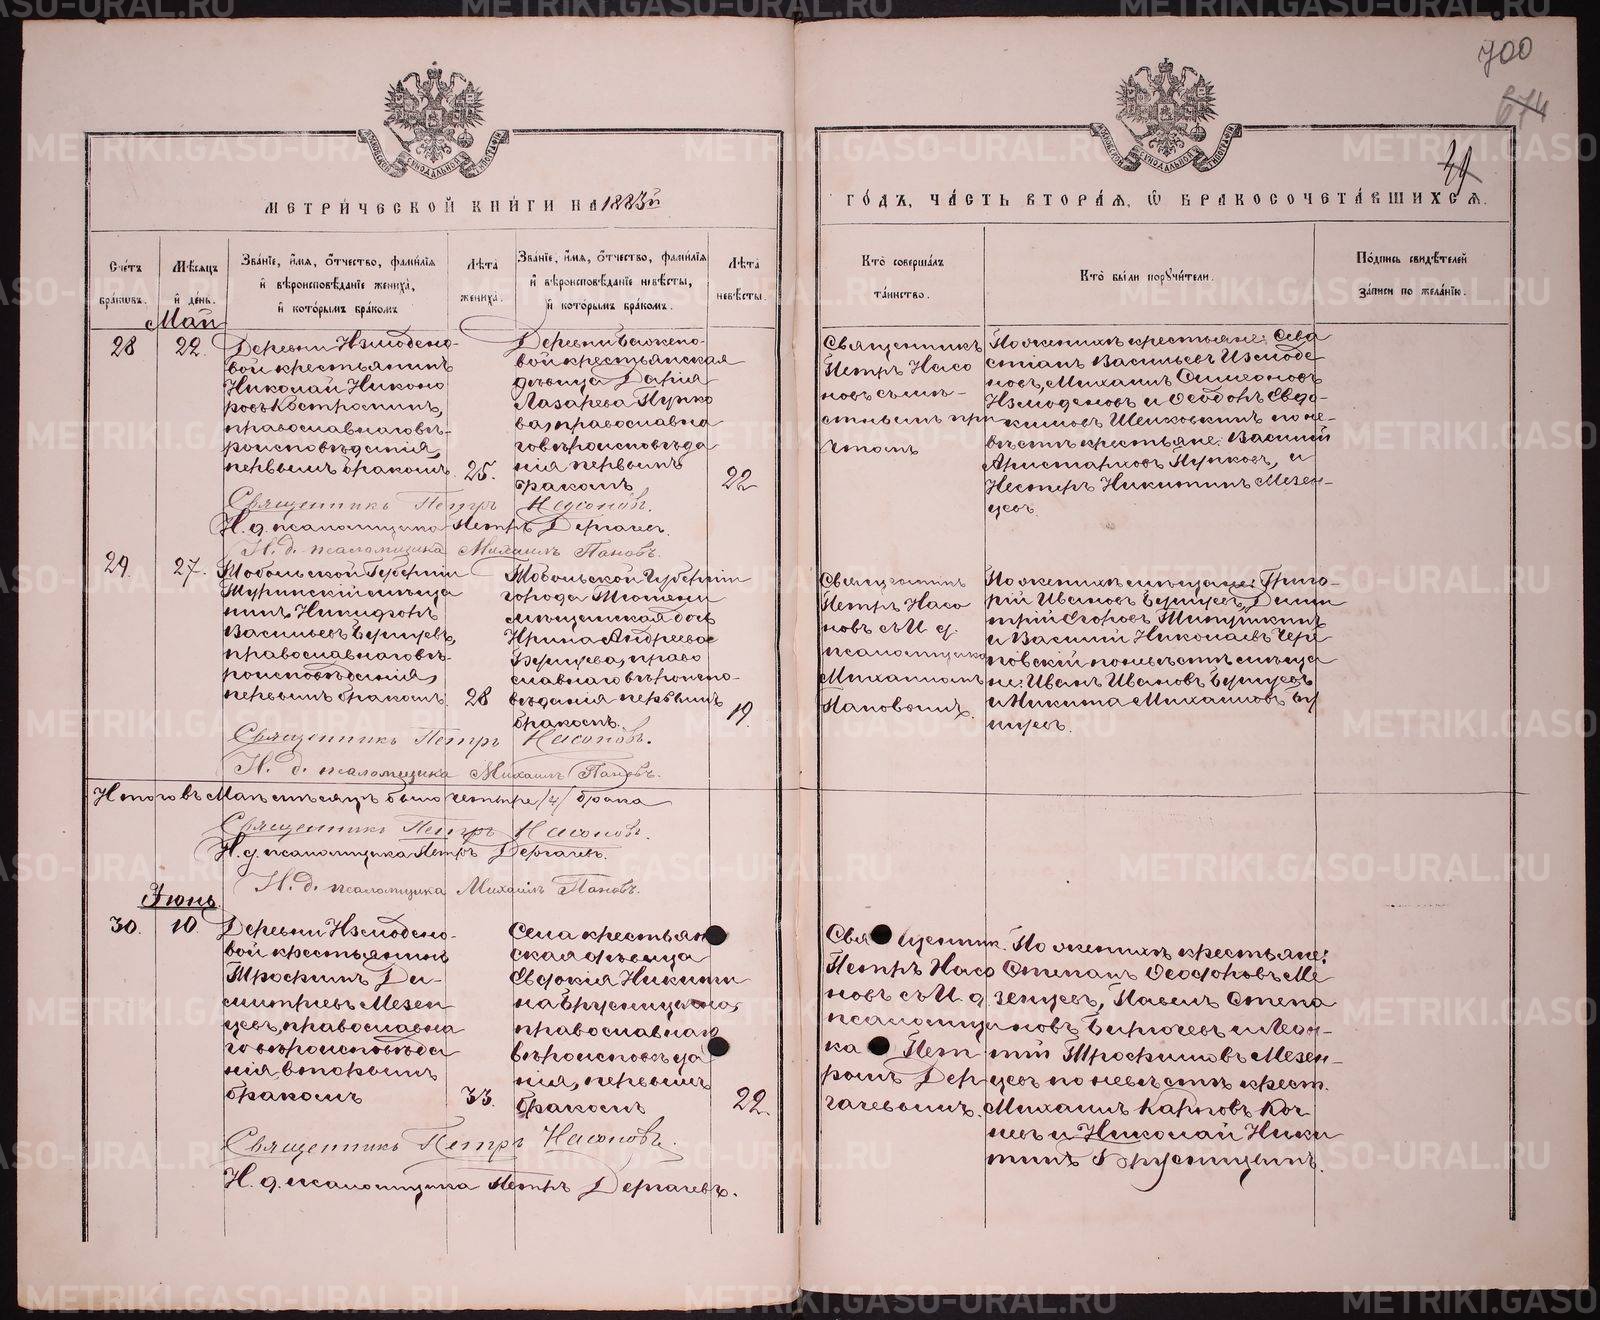 700
674
49
МЕТРИ́ЧЕСКОЙ КНИ́ГИ НА 1883й
ГО́ДЪ, ЧА́СТЬ ВТОРА́Я, Ѡ БРАКОСОЧЕТА́ВШИХСЯ.
Сче́тъ бра́ковъ.
Мѣ́сяцъ и҆ де́нь.
Зва́нїе, и҆́мя, ѻ҆́тчество, фами́лїя
и҆ вѣроисповѣ́данїе жениха̀,
и҆ кото́рымъ бра́комъ
Лѣ́та жениха̀.
Зва́нїе, и҆́мя, ѻ҆́тчество, фами́лїя
и҆ вѣроисповѣ́данїе невѣ́сты,
и҆ кото́рымъ бра́комъ.
Лѣ́та невѣ́сты.
Кто̀ соверша́лъ
та́инство.
Кто̀ бы́ли порꙋчи́тели.
По́дпись свидѣ́телей
за́писи по жела́нїю.
Май
28
22.
Деревни Измодено-
вой крестьянинъ
Николай Никоно
ровъ Костроминъ,
православнаго вѣ-
роисповѣданія,
первымъ бракомъ
25.
Деревни
вой крестьянская
дѣвица Дарія
Лазарева Пупко
ва, православна
го вѣроисповѣда
нія первымъ
бракомъ
22
Священникъ
Петръ Насо
новъ съ
стнымъ при
чтомъ
По женихѣ крестьяне: Сева
стіанъ Васильевъ Измоде
новъ, Михаилъ Симеоновъ
Измоденовъ и Ѳеодоръ Евдо-
кимовъ по не-
вѣстѣ крестьяне: Василій
Аристарховъ Пупковъ, и
Нестеръ Никитинъ Мезен-
цевъ.
Священникъ Петръ Насоновъ.
И. д. псаломщика Петръ Дергачевъ.
И. д. псаломщика Михаилъ Пановъ.
29.
27.
Тобольской Губерніи
Туринскій мѣща
нинъ Никифоръ
Васильевъ
православнаго вѣ-
роисповѣданія,
первымъ бракомъ.
28
Тобольской Губерніи
города Тюмени
мѣщанская дочь
Ирина Андреева
право
славнаго вѣроиспо-
вѣданія первымъ
бракомъ.
19.
Священникъ
Петръ Насо
новъ съ И. д.
псаломщика
Михаиломъ
Пановымъ.
По женихѣ мѣщане: Григо-
рій Ивановъ Дими
трій Егоровъ
и Василій Николаевъ Чер
новскій по невѣстѣ мѣща
не: Иванъ Ивановъ
и Никита Михаиловъ
Священникъ Петръ Насоновъ.
И. д. псаломщика Михаилъ Пановъ.
Итого въ Маѣ мѣсяцѣ было четыре /4/ брака
Священникъ Петръ Насоновъ.
И. д. псаломщика Петръ Дергачевъ.
И. д. псаломщика Михаилъ Пановъ.
Іюнь
30.
10.
Деревни Измодено-
вой крестьянинъ
Трофимъ Ди-
митріевъ Мезен
цевъ, православна
го вѣроисповѣда
нія, вторымъ
бракомъ
33.
Села крестьян
ская дѣвица
Евдокія Никити
на Брусницына,
православнаго
вѣроисповѣда
нія, первымъ
бракомъ
22.
Священникъ
Петръ Насо
новъ съ И. д.
псаломщи
ка Пет
ромъ Дер
гачевымъ.
По женихѣ крестьяне:
Степанъ Ѳеодоровъ Ме
зенцевъ, Павелъ Степа
новъ Бирючевъ и Леон-
тій Трофимовъ Мезен-
цевъ по невѣстѣ крест.
Михаилъ Карповъ Коч
невъ и Николай Ники
тинъ Брусницынъ.
Священникъ Петръ Насоновъ.
И. д. псаломщика Петръ Дергачевъ.
METRIKI.GASO-URAL.RU